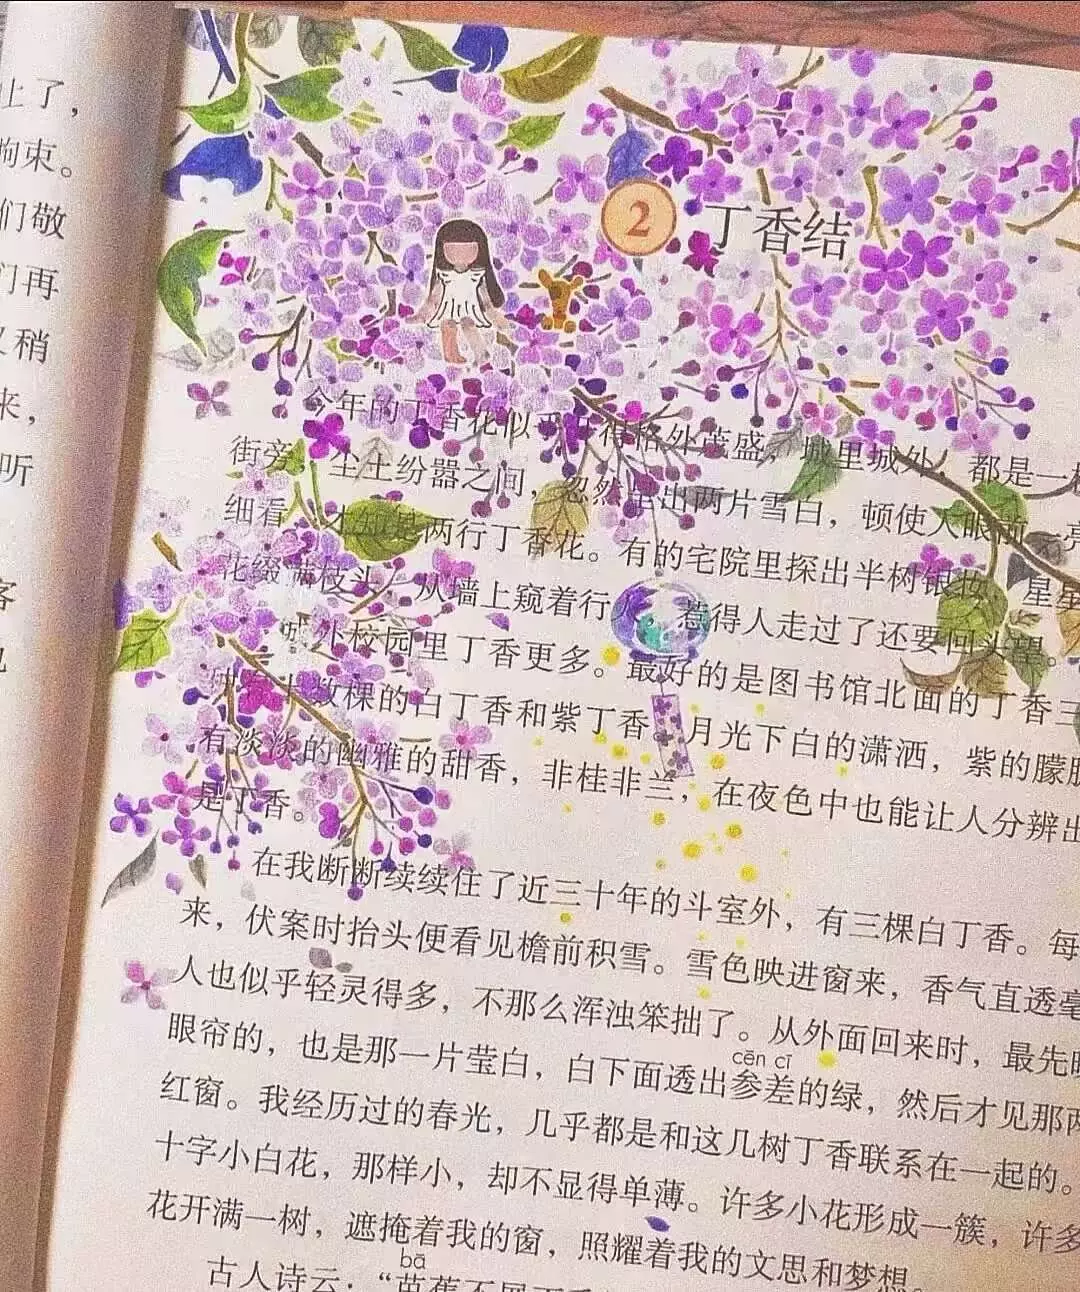 上了，
拘束。
们敬
们再
又稍
来，
听
客
2 丁香结
今年的丁香花似乎 得格外茂盛，城里城外，都是一
街旁，尘土纷嚣之间，忽然呈出两片雪白，顿使人眼前一亮
细看，才知是两行丁香花。有的宅院里探出半树银妆，星星
花缀满枝头，从墙上窥着行 ，惹得人走过了还要回头望。
外校园里丁香更多。最好的是图书馆北面的丁香三
十数棵的白丁香和紫丁香。月光下白的潇洒，紫的朦胧
有淡淡的幽雅的甜香，非桂非兰，在夜色中也能让人分辨出
是丁香。
在我断断续续住了近三十年的斗室外，有三棵白丁香。每
来，伏案时抬头便看见檐前积雪。雪色映进窗来，香气直透毫
人也似乎轻灵得多，不那么浑浊笨拙了。从外面回来时，最先映
眼帘的，也是那一片莹白，白下面透出参差的绿，然后才见那两
cēn cī
红窗。我经历过的春光，几乎都是和这几树丁香联系在一起的。
十字小白花，那样小，却不显得单薄。许多小花形成一簇，许多
花开满一树，遮掩着我的窗，照耀着我的文思和梦想。
bā
古人诗云：“芭蕉不展丁香